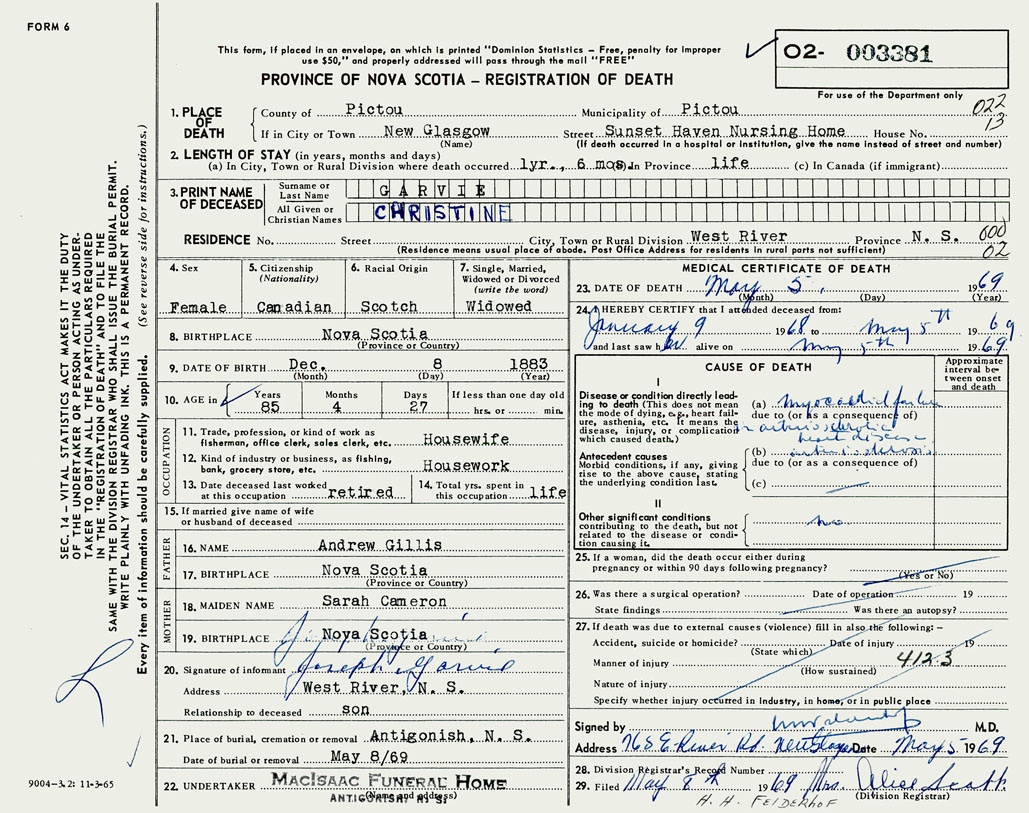 FORM 6
This form, if placed in an envelope, on which is printed "Dominion Statistics – Free, penalty for improper
use $50," and properly addressed will pass through the mail "FREE"
PROVINCE OF NOVA SCOTIA – REGISTRATION OF DEATH
02- 003381
For use of the Department only
022
13
1. PLACE OF DEATH
County of Pictou Municipality of Pictou
If in City or Town New Glasgow Street Sunset Haven Nursing Home House No.
(Name) (If death occurred in a hospital or institution, give the name instead of street and number)
2. LENGTH OF STAY (in years, months and days)
(a) In City, Town or Rural Division where death occurred 1yr., 6 mos. (b) In Province life (c) In Canada (if immigrant)
3. PRINT NAME OF DECEASED
Surname or Last Name GARVIE
All Given or Christian Names CHRISTINE
RESIDENCE No. Street City, Town or Rural Division West River Province N. S.
600
02
(Residence means usual place of abode. Post Office Address for residents in rural parts not sufficient)
4. Sex Female
5. Citizenship (Nationality) Canadian
6. Racial Origin Scotch
7. Single, Married, Widowed or Divorced (write the word) Widowed
8. BIRTHPLACE Nova Scotia
(Province or Country)
9. DATE OF BIRTH Dec. 8 1883
(Month) (Day) (Year)
10. AGE in Years 85 Months 4 Days 27 If less than one day old hrs. or min.
OCCUPATION
11. Trade, profession, or kind of work as fisherman, office clerk, sales clerk, etc. Housewife
12. Kind of industry or business, as fishing, bank, grocery store, etc. Housework
13. Date deceased last worked at this occupation retired
14. Total yrs. spent in this occupation life
15. If married give name of wife or husband of deceased
FATHER
16. NAME Andrew Gillis
17. BIRTHPLACE Nova Scotia
(Province or Country)
MOTHER
18. MAIDEN NAME Sarah Cameron
19. BIRTHPLACE Nova Scotia
(Province or Country)
20. Signature of informant Joseph Garvie
Address West River, N. S.
Relationship to deceased son
21. Place of burial, cremation or removal Antigonish, N. S.
Date of burial or removal May 8/69
22. UNDERTAKER MACISAAC FUNERAL HOME
(Name and address)
ANTIGONISH, N. S.
MEDICAL CERTIFICATE OF DEATH
23. DATE OF DEATH May 5, 1969
(Month) (Day) (Year)
24. I HEREBY CERTIFY that I attended deceased from:
January 9 1968 to May 5th 1969
and last saw her alive on May 5th 1969
CAUSE OF DEATH
Approximate interval between onset and death
I
Disease or condition directly leading to death (This does not mean the mode of dying, e.g., heart failure, asthenia, etc. It means the disease, injury, or complication which caused death.)
(a) myocardial failure
due to (or as a consequence of)
arteriosclerotic
heart disease
Antecedent causes
Morbid conditions, if any, giving rise to the above cause, stating the underlying condition last.
(b) arteriosclerosis
due to (or as a consequence of)
(c)
II
Other significant conditions contributing to the death, but not related to the disease or condition causing it.
no
25. If a woman, did the death occur either during pregnancy or within 90 days following pregnancy?
(Yes or No)
26. Was there a surgical operation? Date of operation 19
State findings Was there an autopsy?
27. If death was due to external causes (violence) fill in also the following: –
Accident, suicide or homicide? Date of injury 19
(State which)
Manner of injury 4123
(How sustained)
Nature of injury
Specify whether injury occurred in industry, in home, or in public place
Signed by M.D.
Address 768 E. River Rd. New Glasgow Date May 5 1969
28. Division Registrar's Record Number
29. Filed May 8th 1969 Mrs. Alice Scott
(Division Registrar)
H. H. FELDERHOF
SEC. 14 – VITAL STATISTICS ACT MAKES IT THE DUTY
OF THE UNDERTAKER OR PERSON ACTING AS UNDER-
TAKER TO OBTAIN ALL THE PARTICULARS REQUIRED
IN THE "REGISTRATION OF DEATH" AND TO FILE THE
SAME WITH THE DIVISION REGISTRAR WHO SHALL ISSUE THE BURIAL PERMIT.
WRITE PLAINLY WITH UNFADING INK. THIS IS A PERMANENT RECORD.
Every item of information should be carefully supplied. (See reverse side for instructions.)
9004-3.2: 11-3-65